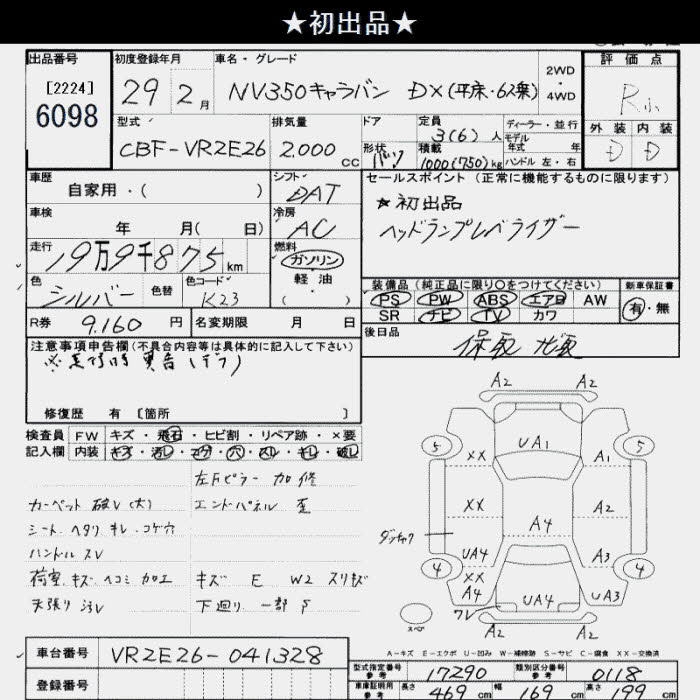 ★初出品★
出品番号
[2224]
6098
初度登録年月
29年 2月
車名・グレード
NV350キャラバン DX(平床・6人乗)
2WD
4WD
評価点
R
外装 内装
D D
型式
CBF-VR2E26
排気量
2,000 cc
ドア
形状 バン
定員
3(6)人
積載
1000(750)kg
ディーラー・並行
モデル
年式 年
ハンドル 左・右
車歴
自家用・( )
シフト
DAT
車検
年 月( 日)
冷房
AC
走行
19万9千875km
燃料
ガソリン
軽油
( )
色
シルバー
色替
色コード
K23
R券
9,160円
名変期限 月 日
セールスポイント(正常に機能するものに限ります)
★初出品
ヘッドランプレベライザー
装備品(純正品に限り○をつけてください)
PS PW ABS エアB AW
SR ナビ TV カワ
新車保証書
有・無
後日品
保取
注意事項申告欄(不具合内容等は具体的に記入して下さい)
※走行時異音(デフ)
修復歴 有 [箇所 ]
検査員
記入欄
FW キズ・飛石・ヒビ割・リペア跡・×要
内装 キズ・汚レ・コゲ・穴・スレ・キレ・破レ
左Fピラー 加修
カーペット 破レ(大) エンドパネル 歪
シート ヘタリ キレ コゲ穴
ハンドル スレ
荷室 キズ ヘコミ 加工 キズ E W2 スリキズ
天張り 汚レ 下廻り 一部 S
A2 A2
UA1
5 5
XX A1
XX A2
A4
ダッチャク
UA4 A3
4 4
XX
A4
UA4 UA3
ワレ
スペア
A2 A2
A-キズ E-エクボ U-凹み W-補修跡 S-サビ C-腐食 XX-交換済
車台番号
VR2E26-041328
登録番号
型式指定番号
参考
17290
類別区分番号
参考
0118
車庫証明用
参考
長さ 469cm 幅 169cm 高さ 199cm